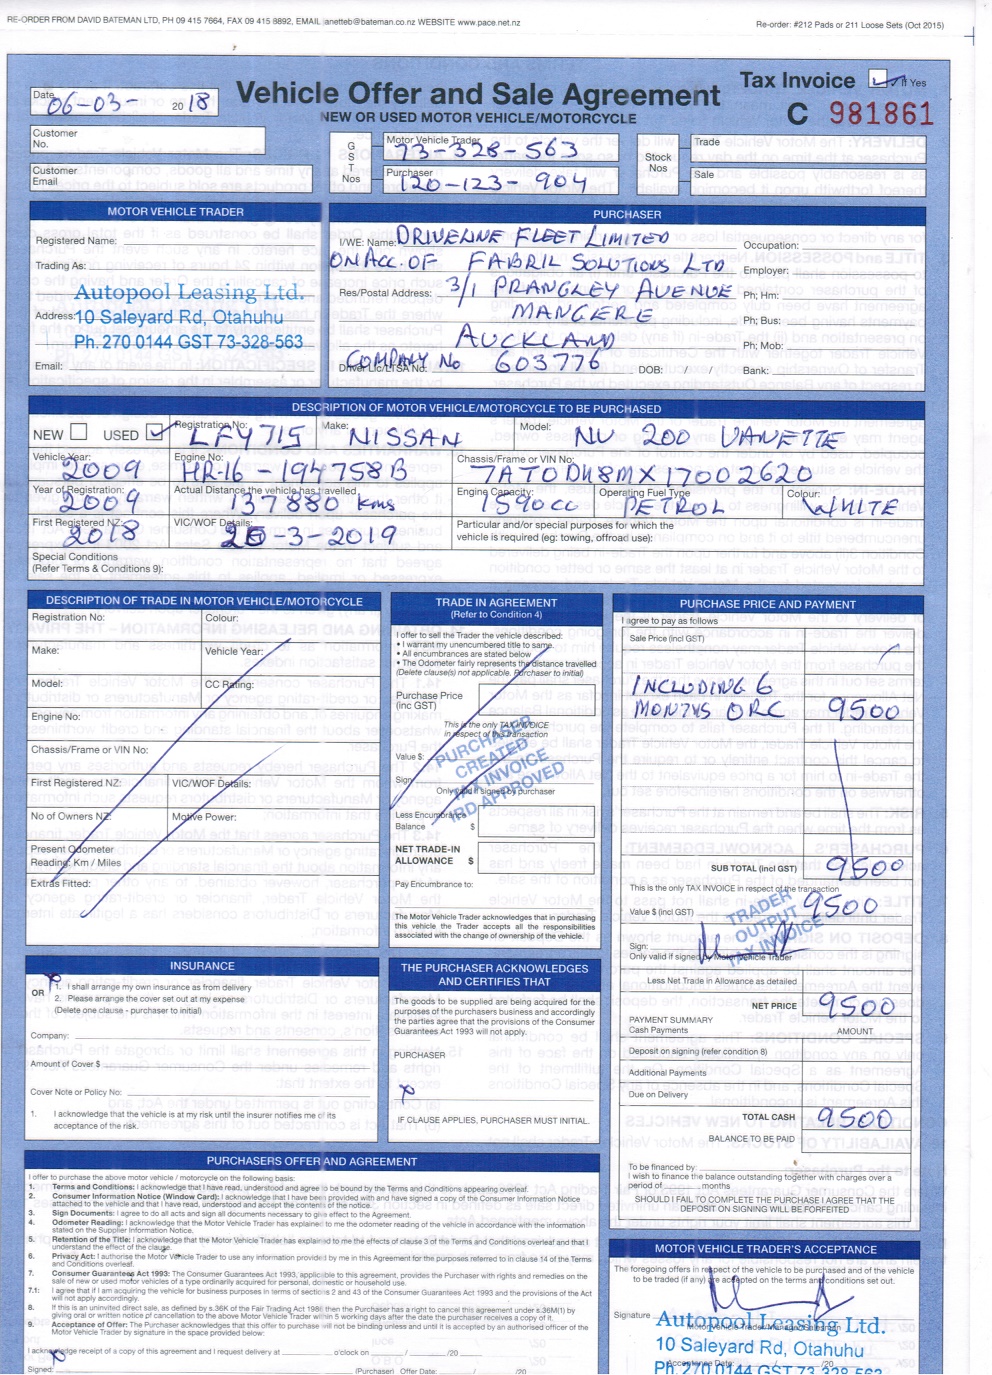 RE-ORDER FROM DAVID BATEMAN LTD, PH 09 415 7664, FAX 09 415 8892, EMAIL janetteb@bateman.co.nz WEBSITE www.pace.net.nz
Re-order: #212 Pads or 211 Loose Sets (Oct 2015)
Date 06-03- 2018
Vehicle Offer and Sale Agreement
NEW OR USED MOTOR VEHICLE/MOTORCYCLE
Tax Invoice If Yes
C 981861
Customer No.
Customer Email
GST Nos
Motor Vehicle Trader 73-328-563
Purchaser 120-123-904
Stock Nos
Trade
Sale
MOTOR VEHICLE TRADER
Registered Name:
Trading As:
Autopool Leasing Ltd.
Address: 10 Saleyard Rd, Otahuhu
Ph. 270 0144 GST 73-328-563
Email:
PURCHASER
I/WE: Name: DRIVELINE FLEET LIMITED
ON ACC. OF FABRIL SOLUTIONS LTD
Res/Postal Address: 3/1 PRANGLEY AVENUE
MANGERE
AUCKLAND
COMPANY No 603776
Driver Lic/LTSA No.
DOB: / /
Occupation:
Employer:
Ph; Hm:
Ph; Bus:
Ph; Mob:
Bank:
DESCRIPTION OF MOTOR VEHICLE/MOTORCYCLE TO BE PURCHASED
NEW USED
Registration No: LFY715
Make: NISSAN
Model: NV 200 VANETTE
Vehicle Year: 2009
Engine No: HR16-194758B
Chassis/Frame or VIN No: 7AT0DH8MX17002620
Year of Registration: 2009
Actual Distance the vehicle has travelled 137880 kms
Engine Capacity: 1590cc
Operating Fuel Type PETROL
Colour: WHITE
First Registered NZ: 2018
VIC/WOF Details: -3-2019
Particular and/or special purposes for which the vehicle is required (eg: towing, offroad use):
Special Conditions
(Refer Terms & Conditions 9):
DESCRIPTION OF TRADE IN MOTOR VEHICLE/MOTORCYCLE
Registration No:
Colour:
Make:
Vehicle Year:
Model:
CC Rating:
Engine No:
Chassis/Frame or VIN No:
First Registered NZ:
VIC/WOF Details:
No of Owners NZ:
Motive Power:
Present Odometer
Reading: Km / Miles
Extras Fitted:
TRADE IN AGREEMENT
(Refer to Condition 4)
I offer to sell the Trader the vehicle described:
• I warrant my unencumbered title to same.
• All encumbrances are stated below
• The Odometer fairly represents the distance travelled
(Delete clause(s) not applicable, Purchaser to initial)
Purchase Price
(inc GST)
This is the only TAX INVOICE
in respect of this transaction
Value $:
Sign
Only valid if signed by purchaser
PURCHASER
CREATED
TAX INVOICE
IRD APPROVED
Less Encumbrance
Balance $
NET TRADE-IN
ALLOWANCE $
Pay Encumbrance to:
The Motor Vehicle Trader acknowledges that in purchasing
this vehicle the Trader accepts all the responsibilities
associated with the change of ownership of the vehicle.
PURCHASE PRICE AND PAYMENT
I agree to pay as follows
Sale Price (incl GST)
INCLUDING 6
MONTHS ORC 9500
SUB TOTAL (incl GST) 9500
This is the only TAX INVOICE in respect of the transaction
Value $ (incl GST) 9500
Sign:
Only valid if signed by Motor Vehicle Trader
TRADER
OUTPUT
TAX INVOICE
Less Net Trade in Allowance as detailed
NET PRICE 9500
PAYMENT SUMMARY
Cash Payments AMOUNT
Deposit on signing (refer condition 8)
Additional Payments
Due on Delivery
TOTAL CASH 9500
BALANCE TO BE PAID
To be financed by:
I wish to finance the balance outstanding together with charges over a
period of months
SHOULD I FAIL TO COMPLETE THE PURCHASE I AGREE THAT THE
DEPOSIT ON SIGNING WILL BE FORFEITED
INSURANCE
OR
1. I shall arrange my own insurance as from delivery
2. Please arrange the cover set out at my expense
(Delete one clause - purchaser to initial)
Company:
Amount of Cover $
Cover Note or Policy No:
1. I acknowledge that the vehicle is at my risk until the insurer notifies me of its
acceptance of the risk.
THE PURCHASER ACKNOWLEDGES
AND CERTIFIES THAT
The goods to be supplied are being acquired for the
purposes of the purchasers business and accordingly
the parties agree that the provisions of the Consumer
Guarantees Act 1993 will not apply.
PURCHASER
X
IF CLAUSE APPLIES, PURCHASER MUST INITIAL.
PURCHASERS OFFER AND AGREEMENT
I offer to purchase the above motor vehicle / motorcycle on the following basis:
1. Terms and Conditions: I acknowledge that I have read, understood and agree to be bound by the Terms and Conditions appearing overleaf.
2. Consumer Information Notice (Window Card): I acknowledge that I have been provided with and have signed a copy of the Consumer Information Notice
attached to the vehicle and that I have read, understood and accept the contents of the notice.
3. Sign Documents: I agree to do all acts and sign all documents necessary to give effect to the Agreement.
4. Odometer Reading: I acknowledge that the Motor Vehicle Trader has explained to me the odometer reading of the vehicle in accordance with the information
stated on the Supplier Information Notice.
5. Retention of the Title: I acknowledge that the Motor Vehicle Trader has explained to me the effects of clause 3 of the Terms and Conditions overleaf and that I
understand the effect of the clause.
6. Privacy Act: I authorise the Motor Vehicle Trader to use any information provided by me in this Agreement for the purposes referred to in clause 14 of the Terms
and Conditions overleaf.
7. Consumer Guarantees Act 1993: The Consumer Guarantees Act 1993, applicable to this agreement, provides the Purchaser with rights and remedies on the
sale of new or used motor vehicles of a type ordinarily acquired for personal, domestic or household use.
7.1: I agree that if I am acquiring the vehicle for business purposes in terms of sections 2 and 43 of the Consumer Guarantees Act 1993 and the provisions of the Act
will not apply accordingly.
8. If this is an uninvited direct sale, as defined by s.36K of the Fair Trading Act 1986 then the Purchaser has a right to cancel this agreement under s.36M(1) by
giving oral or written notice of cancellation to the above Motor Vehicle Trader within 5 working days after the date the purchaser receives a copy of it.
9. Acceptance of Offer: The Purchaser acknowledges that this offer to purchase will not be binding unless and until it is accepted by an authorised officer of the
Motor Vehicle Trader by signature in the space provided below:
I acknowledge receipt of a copy of this agreement and I request delivery at o'clock on / /20
Signed: (Purchaser) Offer Date: / /20
MOTOR VEHICLE TRADER'S ACCEPTANCE
The foregoing offers in respect of the vehicle to be purchased and of the vehicle
to be traded (if any) are accepted on the terms and conditions set out.
Signature
Autopool Leasing Ltd.
10 Saleyard Rd, Otahuhu
Ph. 270 0144 GST 73-328-563
Acceptance Date: / /20